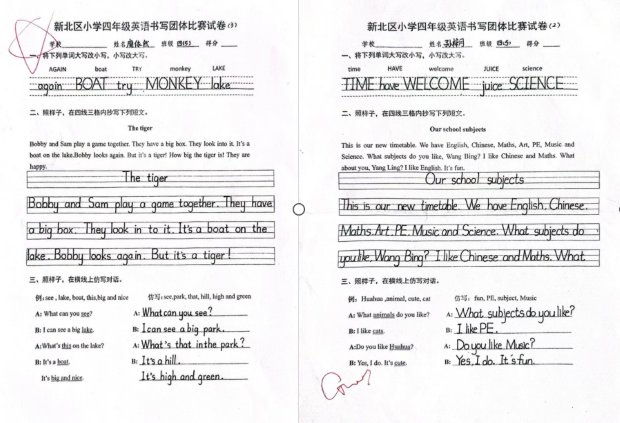 新北区小学四年级英语书写团体比赛试卷(3)
学校 姓名 班级 四(5) 得分
一、将下列单词大写改小写，小写改大写。
AGAIN boat TRY monkey LAKE
again BOAT try MONKEY lake
二、照样子，在四线三格内抄写下列短文。
The tiger
Bobby and Sam play a game together. They have a big box. They look into it. It's a
boat on the lake.Bobby looks again. But it's a tiger! How big the tiger is! They are
happy.
The tiger
Bobby and Sam play a game together. They have
a big box. They look in to it. It's a boat on the
lake. Bobby looks again. But it's a tiger!
三、照样子，在横线上仿写对话。
例: see , lake, boat, this,big and nice 仿写:see,park, that, hill, high and green
A: What can you see? A: What can you see?
B: I can see a big lake. B: I can see a big park.
A:What's this on the lake? A: What's that in the park?
B: It's a boat. B: It's a hill.
It's big and nice. It's high and green.
新北区小学四年级英语书写团体比赛试卷(2)
学校 姓名 班级 四(5) 得分
一、将下列单词大写改小写，小写改大写。
time HAVE welcome JUICE science
TIME have WELCOME juice SCIENCE
二、照样子，在四线三格内抄写下列短文。
Our school subjects
This is our new timetable. We have English, Chinese, Maths, Art, PE, Music and
Science. What subjects do you like, Wang Bing? I like Chinese and Maths. What
about you, Yang Ling? I like English. It's fun.
Our school subjects
This is our new timetable. We have English. Chinese.
Maths. Art. PE. Music and Science. What subjects do
you like, Wang Bing? I like Chinese and Maths. What
三、照样子，在横线上仿写对话。
例: Huahua ,animal, cute, cat 仿写: fun, PE, subject, Music
A: What animals do you like? A: What subjects do you like?
B: I like cats. B: I like PE.
A:Do you like Huahua? A: Do you like Music?
B: Yes, I do. It's cute. B: Yes, I do. It's fun.